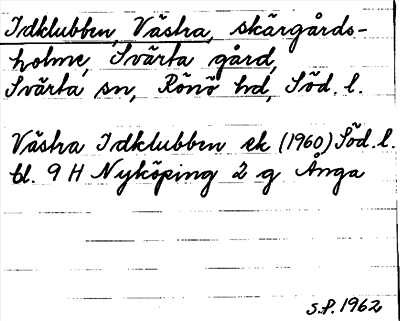 Idklubben, Västra, skärgårds-
holme, Svärta gård,
Svärta sn, Rönö hd, Söd. l.
Västra Idklubben ek (1960) Söd. l.
bl. 9 H Nyköping 2 g Ånga
S.P. 1962